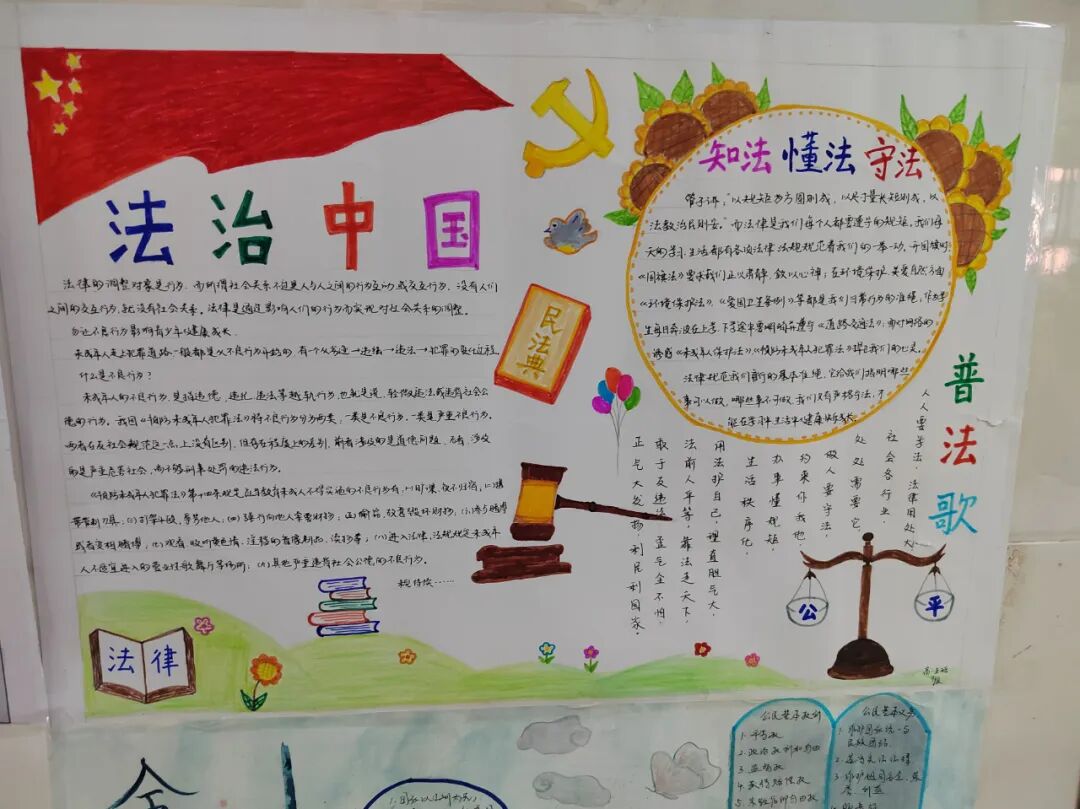 法治中国
法律的调整对象是行为,而所谓社会关系不过是人与人之间的行为互动或交互行为,没有人
之间的交互行为,就没有社会关系。法律是通过影响人们的行为而实现对社会关系的调整。
不良行为影响青少年健康成长
未成年人走上犯罪道路一般都是从不良行为开始的,有一个从劣迹→违纪→违法→犯罪的演化过程。
什么是不良行为?
未成年人的不良行为,是指违德、违纪、违法等越轨行为,也就是说,轻微违法或违背社会公
德的行为。我国《预防未成年人犯罪法》将不良行为分为两类,一类是不良行为,一类是严重不良行为。
两者在反社会规范这一点上没有区别,但存在程度上的差别,前者涉及的是道德问题,后者涉及
的是严重危害社会,尚不够刑事处罚的违法行为。
《预防未成年人犯罪法》第十四条规定
带管制刀具;(三)打架斗殴、辱骂他人;(四)强行向他人索要财物;(五)偷窃、故意毁坏财物;(六)参与赌博
或者变相赌博;(七)观看、收听色情、淫秽的音像制品、读物等;(八)进入法律、法规规定未成年
人不适宜进入的营业性歌舞厅等场所;(九)其他严重违背社会公德的不良行为。
法律
民法典
知法 懂法 守法
管子讲:“以规矩为方圆则成,以尺寸量长短则成,以
法数治民则安。”而法律是我们每个人都要遵守的规矩,我们每
天的学习、生活都有各项法律法规规范着我们的一举一动,升国旗时
《国旗法》要求我们正以肃静、敛以心神;在环境保护、关爱自然方面
《环境保护法》、《爱国卫生条例》等都是我们日常行为的准绳,作为学
生每日奔波在上学、下学途中要明确并遵守《道路交通法》;面对网络的
诱惑《未成年人保护法》《预防未成年人犯罪法》
法律规范我们言行的基本准绳,它给我们指明哪些
事可以做,哪些事不可做,我们只有严格守法,才
能在学习中生活中健康快乐成长。
普法歌
人人要学法,法律用处大,
社会各行业,
处处需要它,
做人要守法,
约束你我他,
办事懂规矩,
生活秩序化,
用法护自己,理直胆气大,
法前人平等,靠法走天下,
敢于反违法,歪气全不怕,
正气大发扬,利民利国家。
公
平
公民基本权利
1.平等权
2.政治权利和自由
3.监督权
公民基本义务
1.维护国家统一与
民族团结